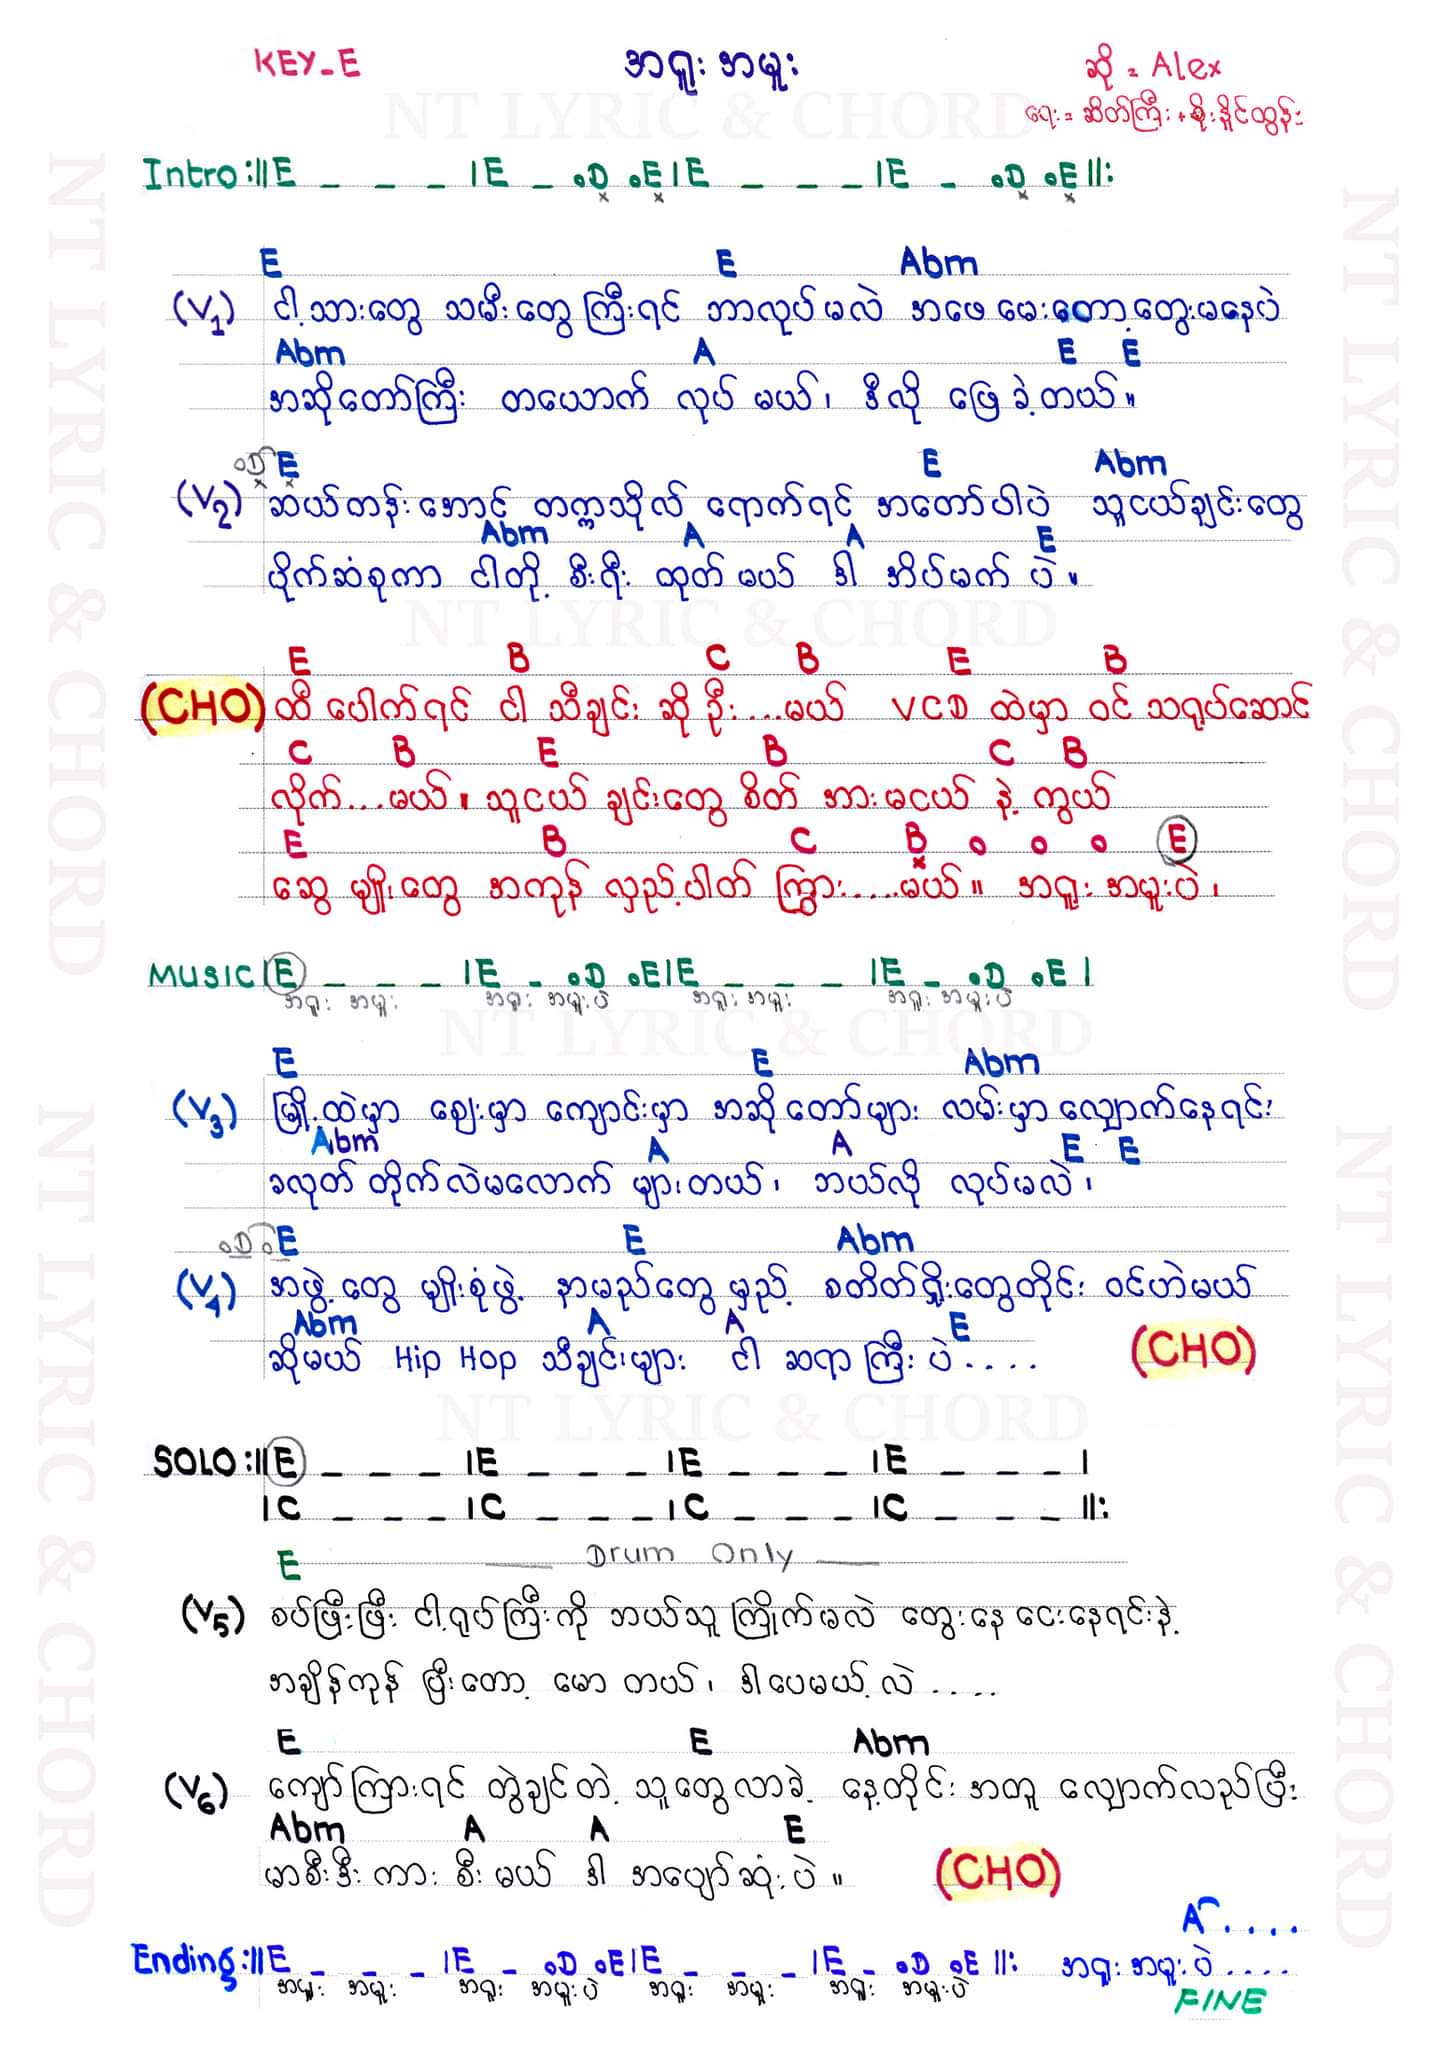 KEY-E
အရူးအမူး
ဆို = Alex
ရေး = ဆိတ်ကြီး + စိုးနိုင်ထွန်း
NT LYRIC & CHORD
Intro :||E _ _ _ |E _ .D .E|E _ _ _ |E _ .D .E||:
E E Abm
(V1) ငါ့သားတွေ သမီးတွေကြီးရင် ဘာလုပ်မလဲ အဖေမေးတော့တွေးမနေပဲ
Abm A E E
အဆိုတော်ကြီး တယောက် လုပ်မယ်၊ ဒီလို ဖြေခဲ့တယ်။
.D E E Abm
(V2) ဆယ်တန်းအောင် တက္ကသိုလ် ရောက်ရင် အတော်ပါပဲ သူငယ်ချင်းတွေ
Abm A A E
ပိုက်ဆံစုကာ ငါတို့ စီးရီး ထုတ်မယ် ဒါ အိပ်မက်ပဲ။
E B C B E B
(CHO) ထီပေါက်ရင် ငါ သီချင်း ဆိုဦး...မယ် VCD ထဲမှာ ဝင်သရုပ်ဆောင်
C B E B C B
လိုက်...မယ်။ သူငယ်ချင်းတွေ စိတ်အားမငယ်နဲ့ ကွယ်
E B C B o o o E
ဆွေမျိုးတွေ အကုန် လှည့်ပါတ် ကြွား....မယ်။ အရူးအမူးပဲ၊
MUSIC |E _ _ _ |E _ .D .E|E _ _ _ |E _ .D .E|
အရူး အမူး အရူး အမူးပဲ အရူး အမူး အရူး အမူးပဲ
NT LYRIC & CHORD
E E Abm
(V3) မြို့ထဲမှာ ဈေးမှာ ကျောင်းမှာ အဆိုတော်များ လမ်းမှာလျှောက်နေရင်း
Abm A A E E
ခလုတ်တိုက်လဲမလောက် များတယ်၊ ဘယ်လို လုပ်မလဲ၊
.D. E E Abm
(V4) အဖွဲ့တွေ မျိုးစုံဖွဲ့ နာမည်တွေမှည့် စတိတ်ရှိုးတွေတိုင်း ဝင်ဟဲမယ်
Abm A A E
ဆိုမယ် Hip Hop သီချင်းများ ငါ ဆရာကြီးပဲ.... (CHO)
NT LYRIC & CHORD
SOLO :||E _ _ _ |E _ _ _ |E _ _ _ |E _ _ _ |
|C _ _ _ |C _ _ _ |C _ _ _ |C _ _ _ ||:
E —— Drum Only ——
(V5) စပ်ဖြီးဖြီး ငါ့ရုပ်ကြီးကို ဘယ်သူကြိုက်မလဲ တွေးနေ ငေးနေရင်းနဲ့
အချိန်ကုန် ပြီးတော့ မောတယ်၊ ဒါပေမယ့်လဲ ....
E E Abm
(V6) ကျော်ကြားရင် တွဲချင်တဲ့ သူတွေလာခဲ့ နေ့တိုင်းအတူ လျှောက်လည်ပြီး
Abm A A E
မာစီးဒီးကား စီးမယ် ဒါ အပျော်ဆုံးပဲ။ (CHO)
A....
Ending :||E _ _ _ |E _ .D .E|E _ _ _ |E _ .D .E ||: အရူးအမူးပဲ....
အရူး အမူး အရူး အမူးပဲ အရူး အမူး အရူး အမူးပဲ
FINE